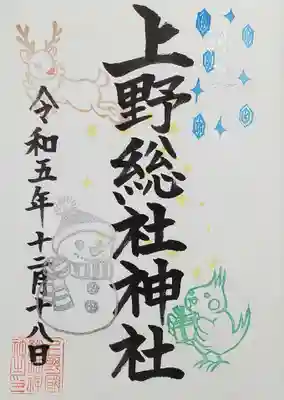 上野総社神社
令和五年十二月十八日